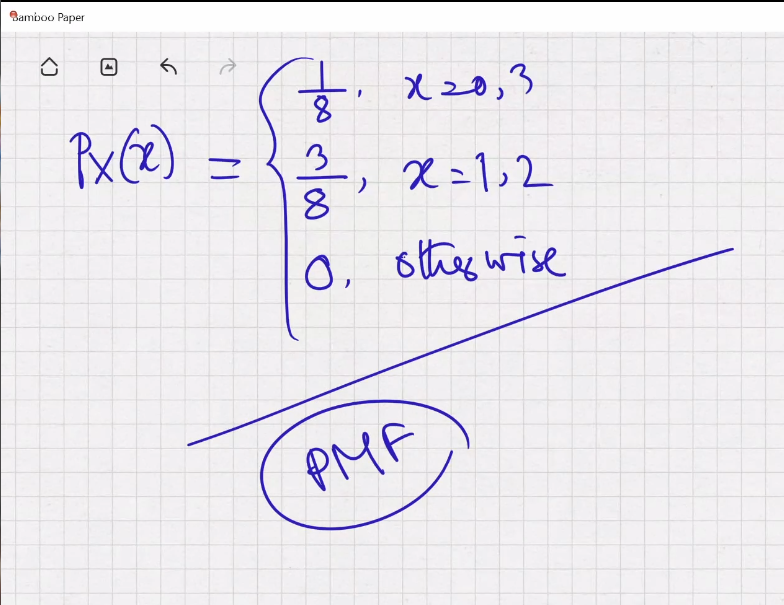 Bamboo Paper
1/8, x=0,3
P_X(x) = { 3/8, x=1,2
0, otherwise
PMF